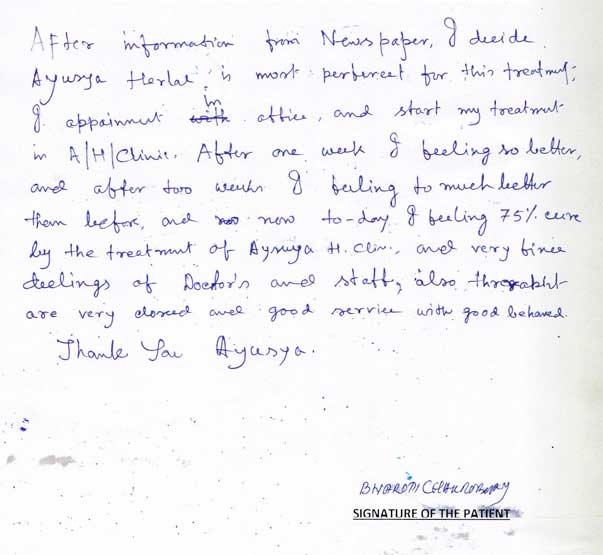 After information from Newspaper, I decide
Ayusya Herlal, is most perferect for this treatmut;
I appainmut in office, and start my treatmut
in A/H/Clinic. After one week I feeling so better,
and after two weeks I feeling to much better
them before, and now to-day I feeling 75% cure
by the treatmut of Aysuya H. Clin., and very fince
deelings of Doctor's and staff, also
are very closed and good service with good behaved.
Thank You Ayusya.
SIGNATURE OF THE PATIENT